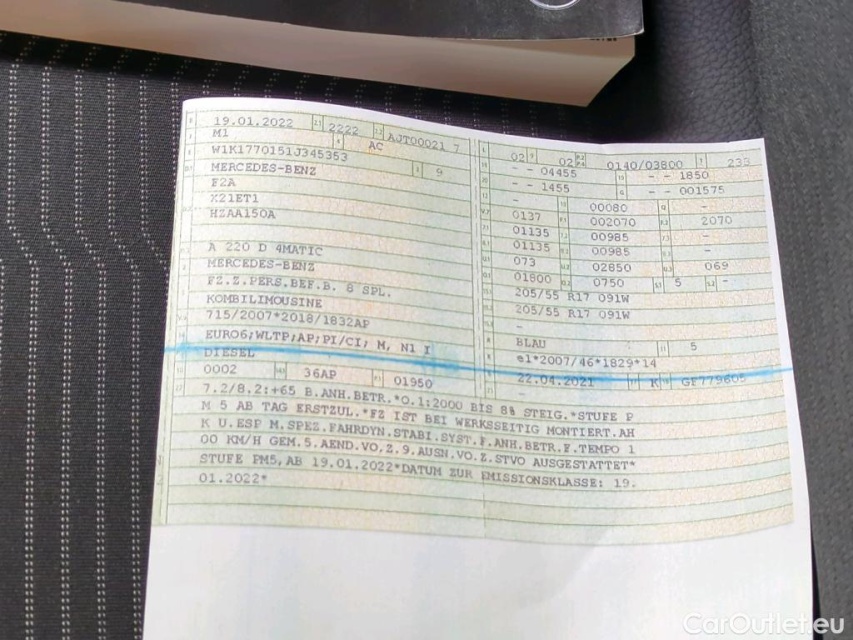 19.01.2022 2222 AJT00021 7
M1 AC
W1K1770151J345353
MERCEDES-BENZ 9
F2A
X21ET1
HZAA150A
A 220 D 4MATIC
MERCEDES-BENZ
FZ.Z.PERS.BEF.B. 8 SPL.
KOMBILIMOUSINE
715/2007*2018/1832AP
EURO6;WLTP;AP;PI/CI; M, N1 I
DIESEL
0002 36AP 01950
02 02 0140/03800 233
- - 04455 - - 1850
- - 1455 - - 001575
- 00080 -
0137 002070 2070
01135 00985 -
01135 00985 -
073 02850 069
01800 0750 5 -
205/55 R17 091W
205/55 R17 091W
-
-
BLAU 5
e1*2007/46*1829*14
22.04.2021 K GF779605
-
7.2/8.2:+65 B.ANH.BETR.*O.1:2000 BIS 8% STEIG.*STUFE P
M 5 AB TAG ERSTZUL.*FZ IST BEI WERKSSEITIG MONTIERT.AH
K U.ESP M.SPEZ.FAHRDYN.STABI.SYST.F.ANH.BETR.F.TEMPO 1
00 KM/H GEM.5.AEND.VO.Z.9.AUSN.VO.Z.STVO AUSGESTATTET*
STUFE PM5,AB 19.01.2022*DATUM ZUR EMISSIONSKLASSE: 19.
01.2022*
CarOutlet.eu